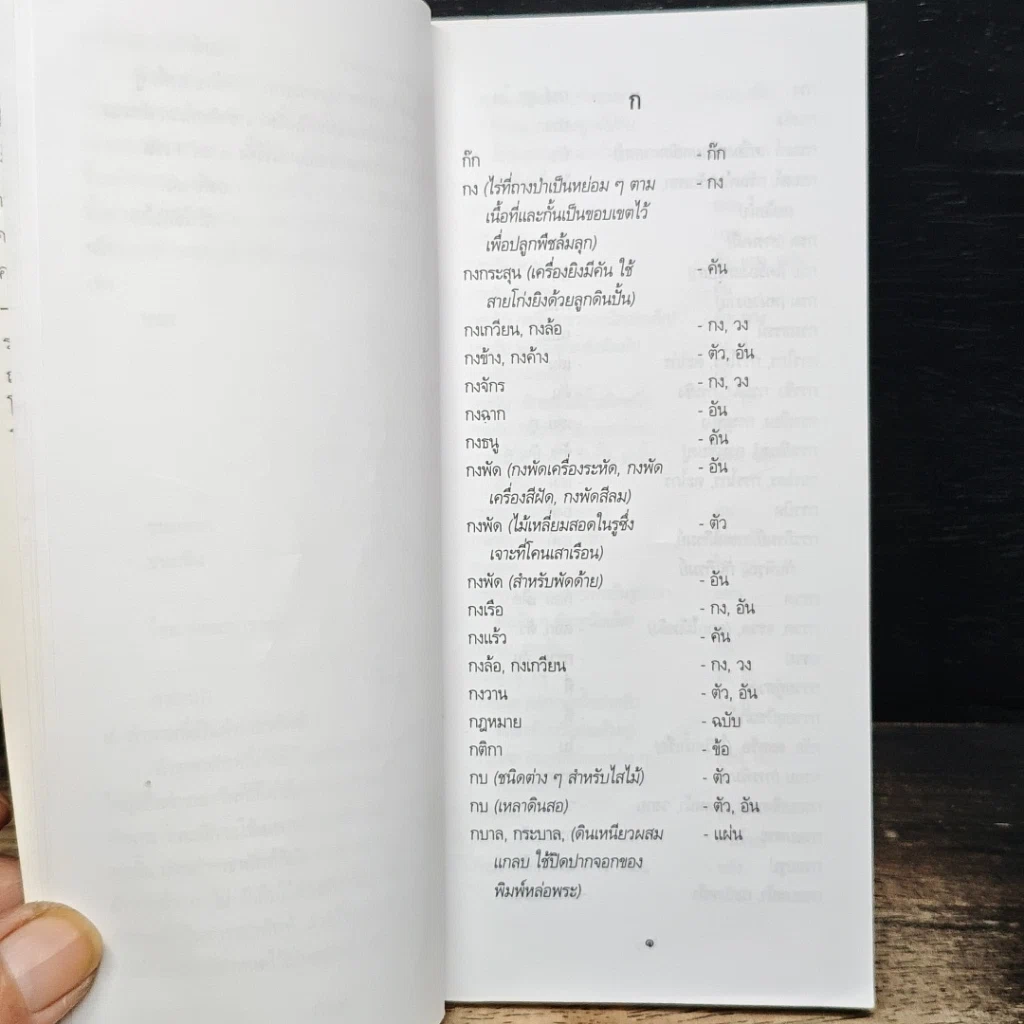 ก
ก๊ก - ก๊ก
กง (ไร่ที่ถางป่าเป็นหย่อม ๆ ตาม - กง
เนื้อที่และกั้นเป็นขอบเขตไว้
เพื่อปลูกพืชล้มลุก)
กงกระสุน (เครื่องยิงมีคัน ใช้ - คัน
สายโก่งยิงด้วยลูกดินปั้น)
กงเกวียน, กงล้อ - กง, วง
กงข้าง, กงค้าง - ตัว, อัน
กงจักร - กง, วง
กงฉาก - อัน
กงธนู - คัน
กงพัด (กงพัดเครื่องระหัด, กงพัด - อัน
เครื่องสีฝัด, กงพัดสีลม)
กงพัด (ไม้เหลี่ยมสอดในรูซึ่ง - ตัว
เจาะที่โคนเสาเรือน)
กงพัด (สำหรับพัดด้าย) - อัน
กงเรือ - กง, อัน
กงแร้ว - คัน
กงล้อ, กงเกวียน - กง, วง
กงวาน - ตัว, อัน
กฎหมาย - ฉบับ
กติกา - ข้อ
กบ (ชนิดต่าง ๆ สำหรับไสไม้) - ตัว
กบ (เหลาดินสอ) - ตัว, อัน
กบาล, กระบาล, (ดินเหนียวผสม - แผ่น
แกลบ ใช้ปิดปากจอกของ
พิมพ์หล่อพระ)
๑